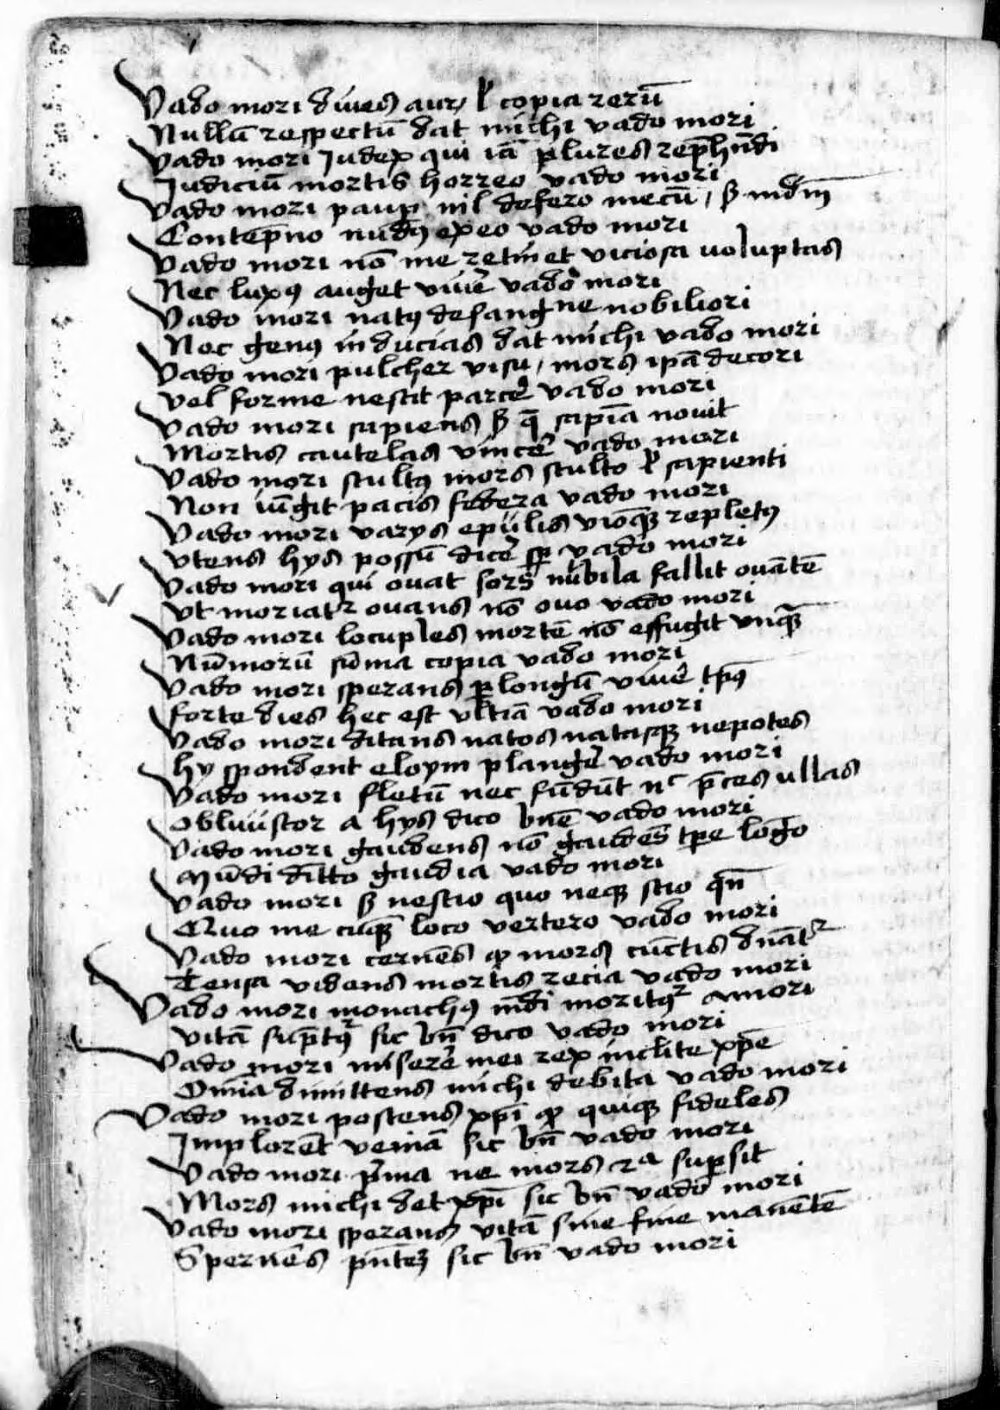 Vado mori dives aur̢ ł copia rerū
Nullā respectū dat michi vado mori
Vado mori Judex qui iā plures rep̄hn̄di
Judiciū mortis horreo vado mori
Vado mori paup̱ nil defero mecū / mūdū
Contēpno nudꝰ exeo vado mori
Vado mori nō me retinet viciosa voluptas
Nec luxꝰ auget viuē vado mori
Vado mori natꝰ de sangne nobiliori
Nec genꝰ inducias dat michi vado mori
Vado mori pulcher visu / mors ip̄a decori
vel forme nescit parcē vado mori
Vado mori sapiens ꝗ̄ sapīa nouit
Mortis cautelas vincē vado mori
Vado mori stultꝰ mors stulto ł sapienti
Non iūgit pacis federa vado mori
Vado mori varys epulis vioqꝫ repletꝰ
vtens hys possū dicē sp̱ vado mori
Vado mori qui ouat sors nubila fallit ouātē
Vt moriatr ouans nō ouo vado mori
Vado mori locuples mortē nō effugit vnqꝫ
Nūmorū sūma copia vado mori
Vado mori sperans ꝑ longū viuē tp̄ꝰ
forte dies hec est vltīa vado mori
Vado mori ditans natos natasqꝫ nepotes
hy spondent eloym plangē vado mori
Vado mori fletū nec fūdūt nc p̄ces vllas
obliuiscor a hys dico bn̄e vado mori
Vado mori gaudens nō gaudēs tp̄e lōgo
Mūdi dīitto gaudia vado mori
Vado mori nescio quo neqꝫ scio qn̄
Quo me cūqꝫ loco vertero vado mori
Vado mori cernēs ꝙ mors cūctis dn̄atr
Tensa videns mortis recia vado mori
Vado mori monachꝰ mūdi moritqr amori
vitā suptqr sic bn̄ dico vado mori
Vado mori miserē mei rex inclite xp̄e
Omīa dimittens michi debita vado mori
Vado mori postens xp̄i ꝙ quiqꝫ fideles
Implorēt veniā sic bn̄ vado mori
Vado mori p̄ma ne mors 2a suꝑsit
Mors michi det xp̄i sic bn̄ vado mori
Vado mori sperans vitā sine fine manētē
Spernēs pn̄tēꝫ sic bn̄ vado mori